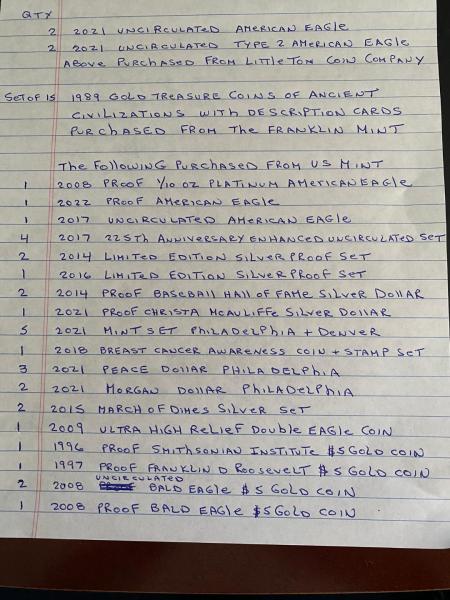 QTY
2 2021 UNCIRCULATED AMERICAN EAGLE
2 2021 UNCIRCULATED TYPE 2 AMERICAN EAGLE
ABOVE PURCHASED FROM LITTLETON COIN COMPANY
SET OF 15 1989 GOLD TREASURE COINS OF ANCIENT
CIVILIZATIONS WITH DESCRIPTION CARDS
PURCHASED FROM THE FRANKLIN MINT
THE FOLLOWING PURCHASED FROM US MINT
1 2008 PROOF 1/10 OZ PLATINUM AMERICAN EAGLE
1 2022 PROOF AMERICAN EAGLE
1 2017 UNCIRCULATED AMERICAN EAGLE
4 2017 225TH ANNIVERSARY ENHANCED UNCIRCULATED SET
2 2014 LIMITED EDITION SILVER PROOF SET
1 2016 LIMITED EDITION SILVER PROOF SET
2 2014 PROOF BASEBALL HALL OF FAME SILVER DOLLAR
1 2021 PROOF CHRISTA MCAULIFFE SILVER DOLLAR
5 2021 MINT SET PHILADELPHIA + DENVER
1 2018 BREAST CANCER AWARENESS COIN + STAMP SET
3 2021 PEACE DOLLAR PHILADELPHIA
2 2021 MORGAN DOLLAR PHILADELPHIA
2 2015 MARCH OF DIMES SILVER SET
1 2009 ULTRA HIGH RELIEF DOUBLE EAGLE COIN
1 1996 PROOF SMITHSONIAN INSTITUTE $5 GOLD COIN
1 1997 PROOF FRANKLIN D ROOSEVELT $5 GOLD COIN
2 2008 UNCIRCULATED BALD EAGLE $5 GOLD COIN
1 2008 PROOF BALD EAGLE $5 GOLD COIN